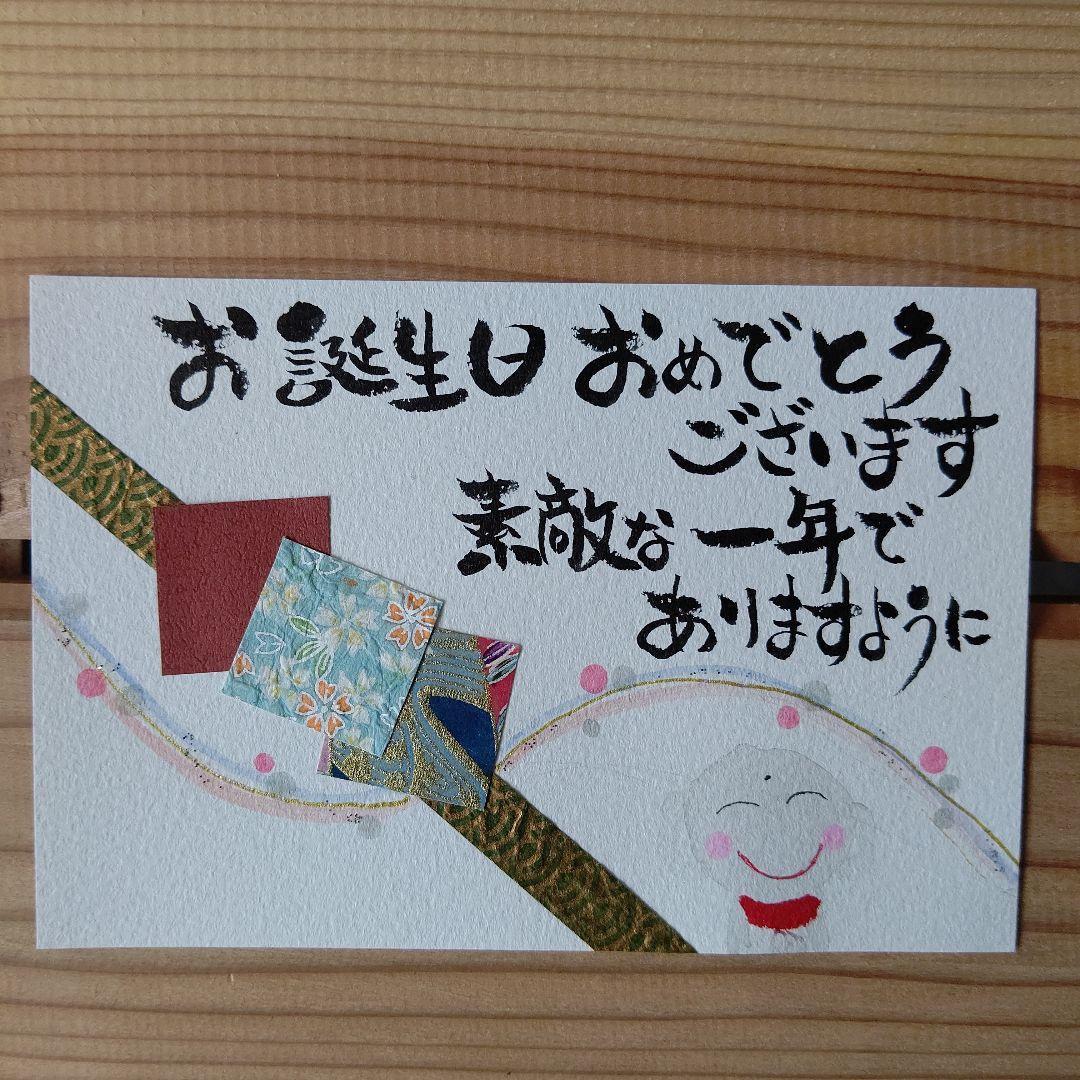 お誕生日おめでとう
ございます
素敵な一年で
ありますように